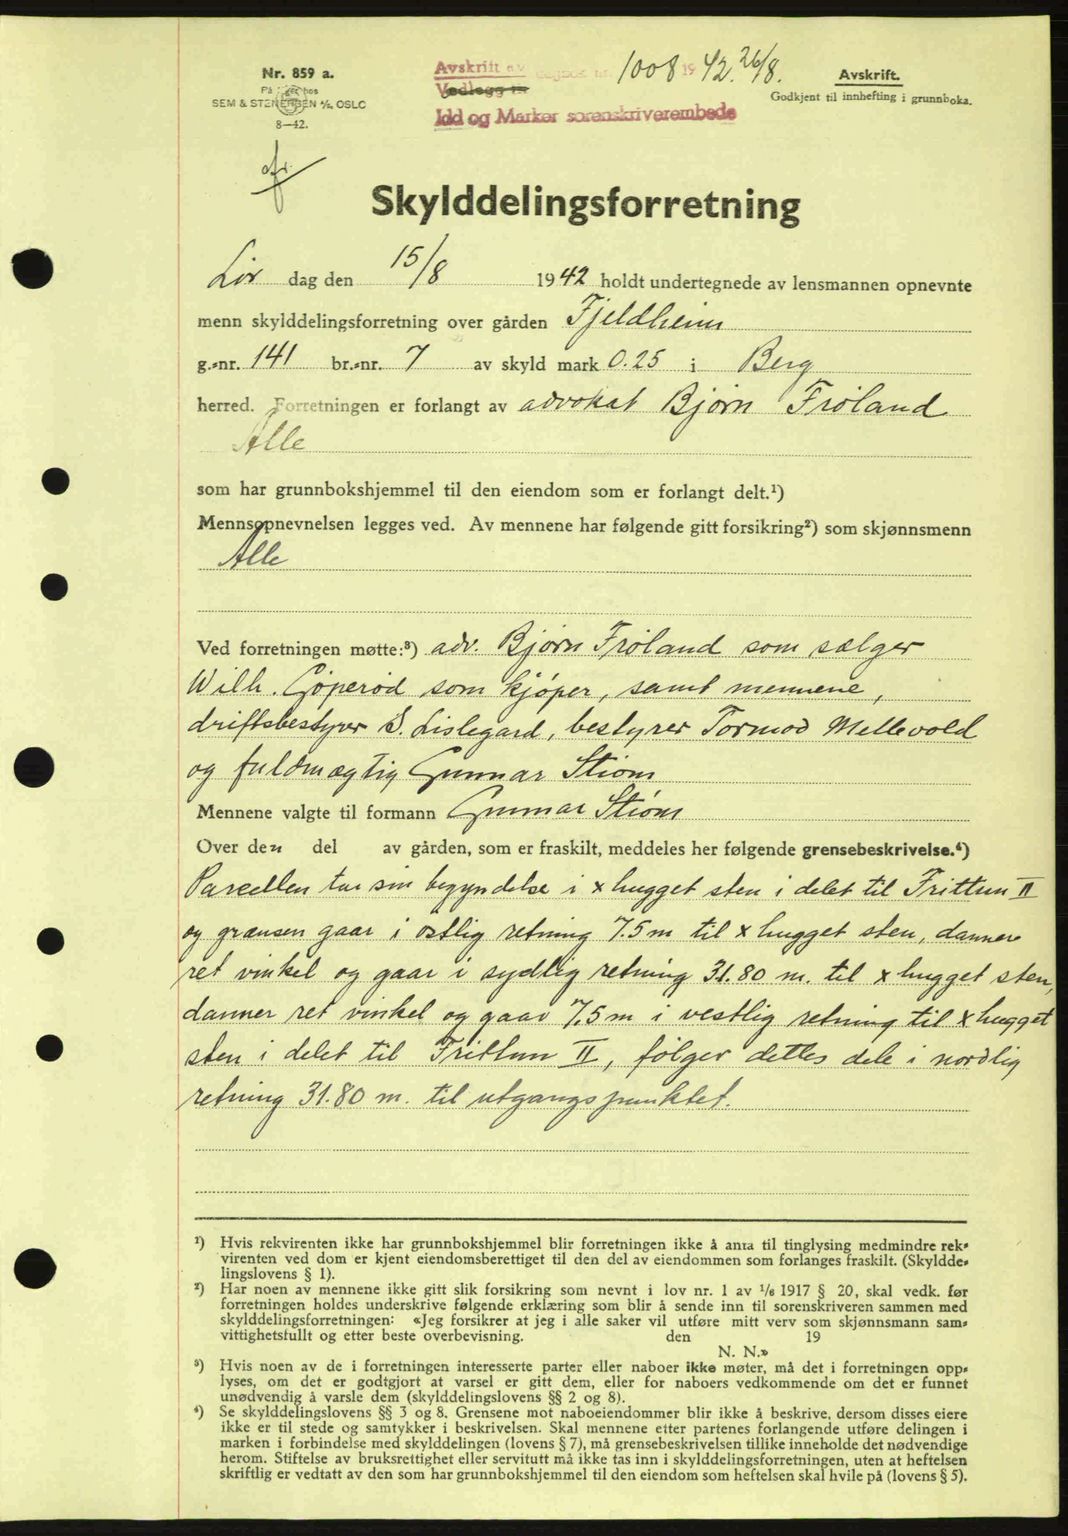 Nr. 859 a.
SEM & STENERSEN A/S, OSLO
8—42.
Avskrift av dagbok nr. 1008 1942. 26/8.
Vedlegg nr.
Idd og Marker sorenskriverembede
Avskrift.
Godkjent til innhefting i grunnboka.
Skylddelingsforretning
Lør dag den 15/8 1942 holdt undertegnede av lensmannen opnevnte
menn skylddelingsforretning over gården Fjeldheim
g.-nr. 141 br.-nr. 7 av skyld mark 0.25 i Berg
herred. Forretningen er forlangt av advokat Bjørn Frøland
Alle
som har grunnbokshjemmel til den eiendom som er forlangt delt.¹)
Mennsopnevnelsen legges ved. Av mennene har følgende gitt forsikring²) som skjønnsmenn
Alle
Ved forretningen møtte:³) adv. Bjørn Frøland som sælger
Wilh. Göperød som kjøper, samt mennene,
driftsbestyrer S. Lislegard, bestyrer Tormod Mellevold
og fuldmægtig Gunnar Strøm
Mennene valgte til formann Gunnar Strøm
Over den del av gården, som er fraskilt, meddeles her følgende grensebeskrivelse.⁴)
Parcellen tar sin begyndelse i x hugget sten i delet til Frittun II
og grænsen gaar i østlig retning 7.5 m til x hugget sten, danner
ret vinkel og gaar i sydlig retning 31.80 m. til x hugget sten,
danner ret vinkel og gaar 7,5 m i vestlig retning til x hugget
sten i delet til Frittun II, følger dettes dele i nordlig
retning 31.80 m. til utgangspunktet.
¹) Hvis rekvirenten ikke har grunnbokshjemmel blir forretningen ikke å anta til tinglysing medmindre rek-
virenten ved dom er kjent eiendomsberettiget til den del av eiendommen som forlanges fraskilt. (Skyldde-
lingslovens § 1).
²) Har noen av mennene ikke gitt slik forsikring som nevnt i lov nr. 1 av 1/6 1917 § 20, skal vedk. før
forretningen holdes underskrive følgende erklæring som blir å sende inn til sorenskriveren sammen med
skylddelingsforretningen: «Jeg forsikrer at jeg i alle saker vil utføre mitt verv som skjønnsmann sam-
vittighetsfullt og etter beste overbevisning. den 19
N. N.»
³) Hvis noen av de i forretningen interesserte parter eller naboer ikke møter, må det i forretningen opp-
lyses, om det er godtgjort at varsel er gitt dem, eller for naboers vedkommende om det er funnet
unødvendig å varsle dem (skylddelingslovens §§ 2 og 8).
⁴) Se skylddelingslovens §§ 3 og 8. Grensene mot naboeiendommer blir ikke å beskrive, dersom disses eiere
ikke er til stede og samtykker i beskrivelsen. Skal mennene etter partenes forlangende utføre delingen i
marken i forbindelse med skylddelingen (lovens § 7), må grensebeskrivelsen tillike inneholde det nødvendige
herom. Stiftelse av bruksrettighet eller servitutt må ikke tas inn i skylddelingsforretningen, uten at heftelsen
skriftlig er vedtatt av den som har grunnbokshjemmel til den eiendom som heftelsen skal hvile på (lovens § 5).